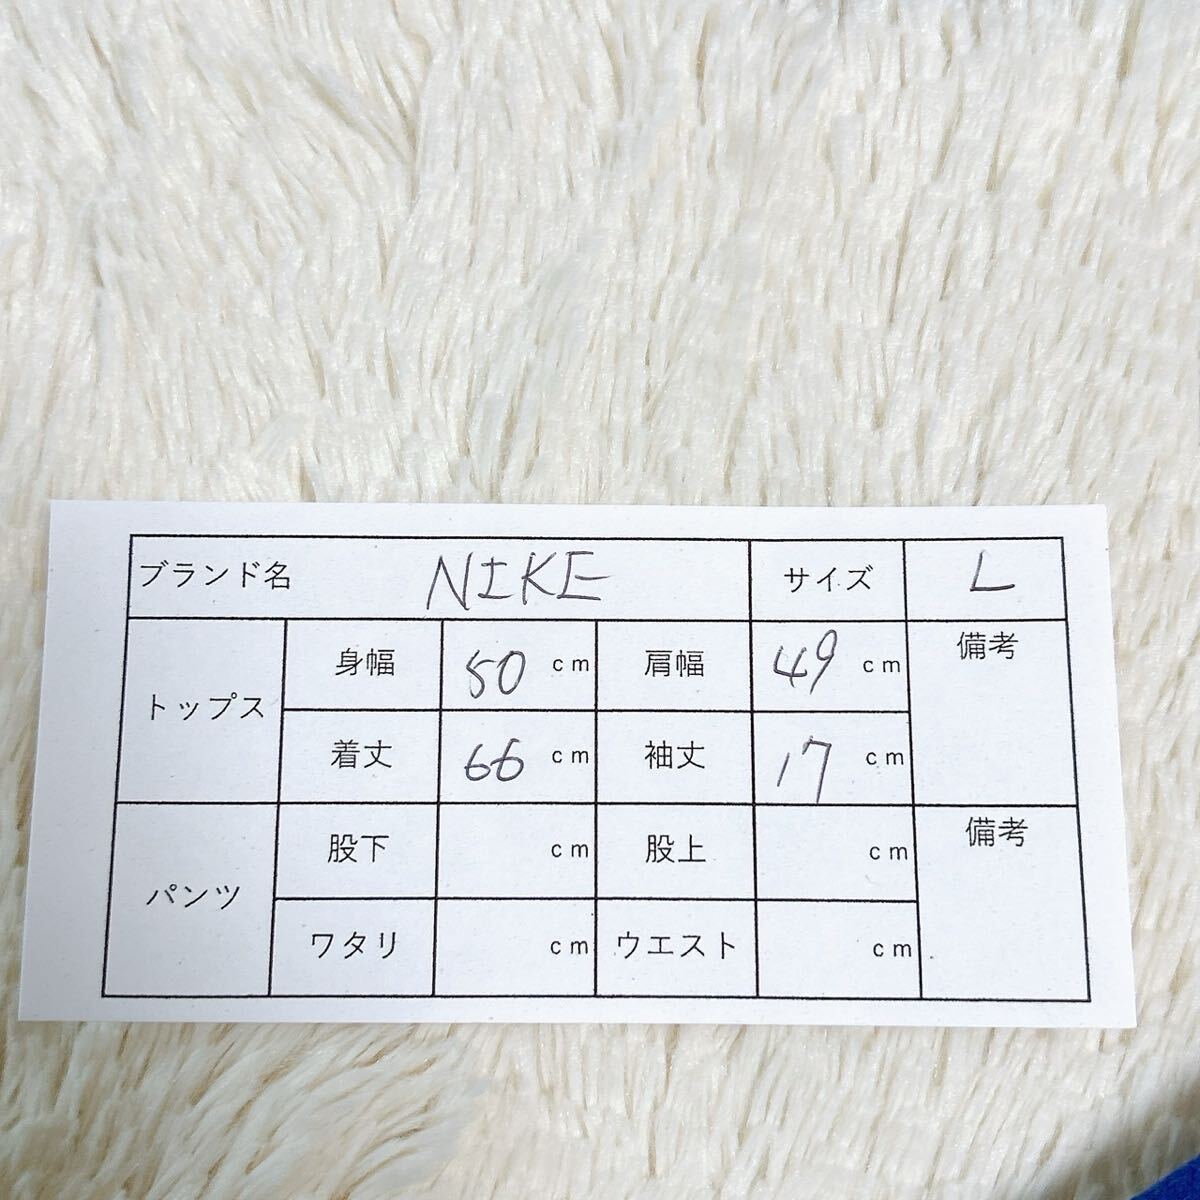 ブランド名 NIKE サイズ L
トップス 身幅 50 cm 肩幅 49 cm 備考
着丈 66 cm 袖丈 17 cm
パンツ 股下 cm 股上 cm 備考
ワタリ cm ウエスト cm